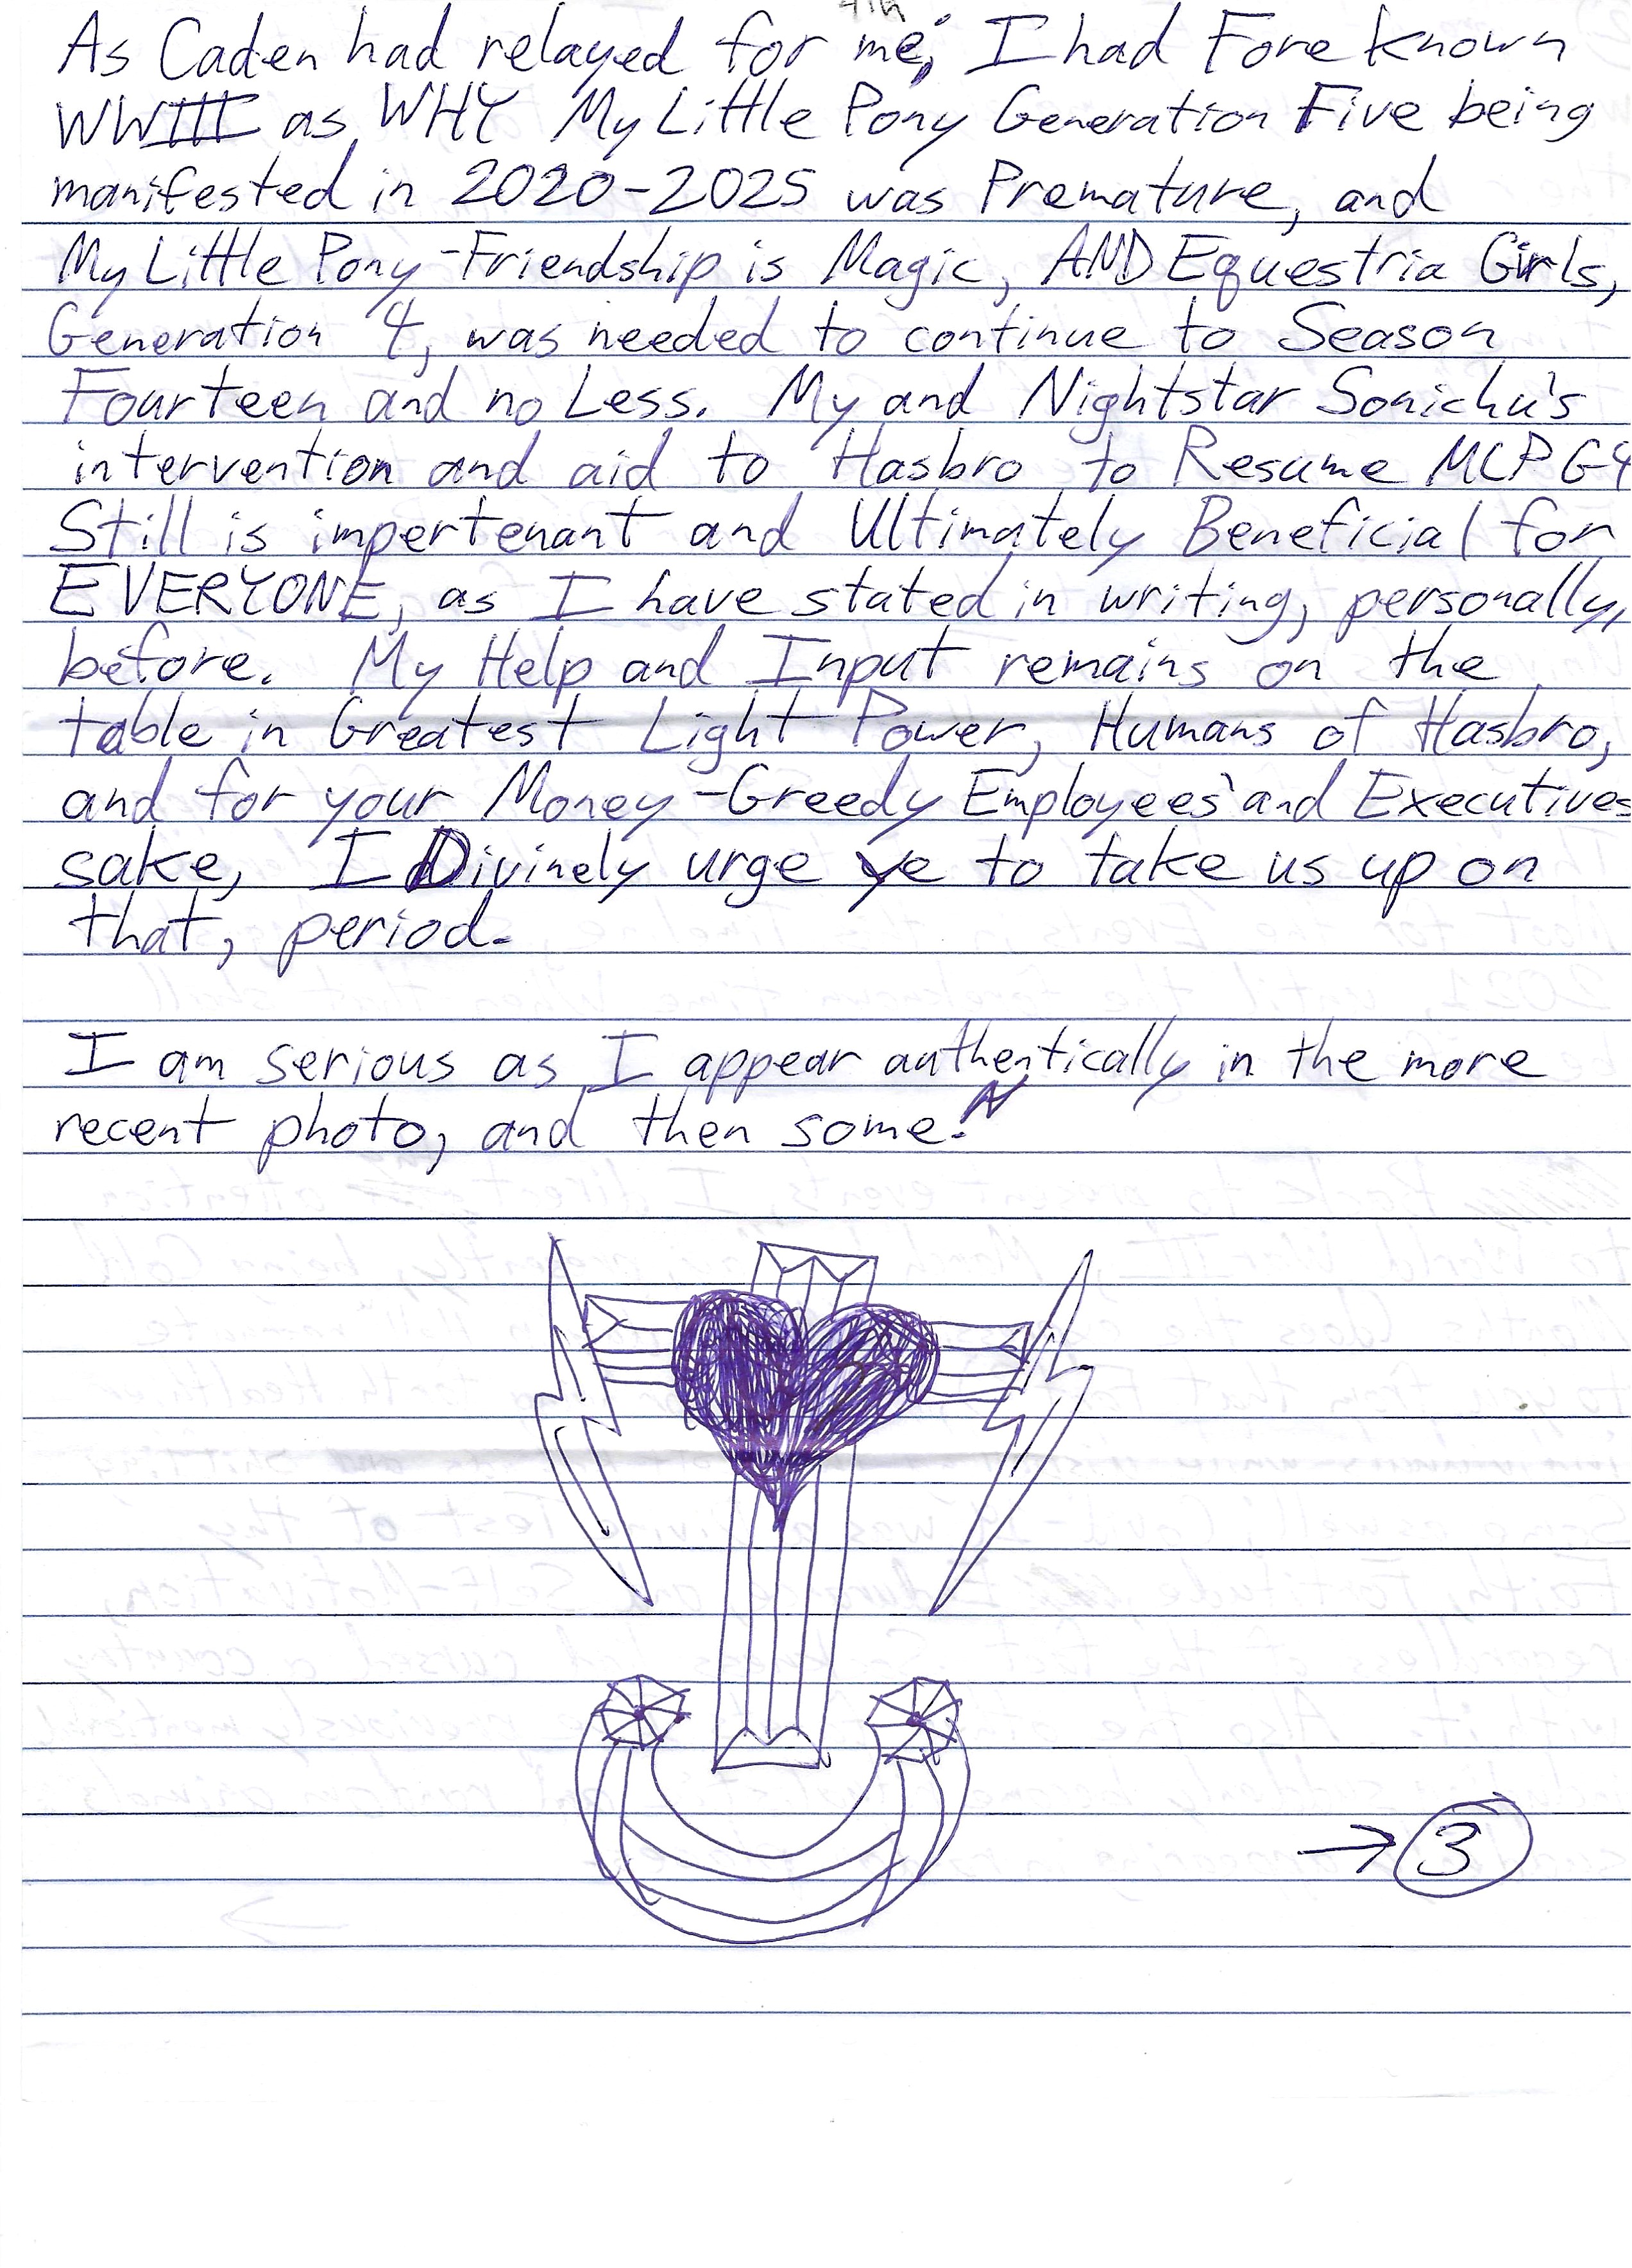 As Caden had relayed for me, I had Fore known
WWIII as WHY My Little Pony Generation Five being
manifested in 2020-2025 was Premature, and
My Little Pony-Friendship is Magic, AND Equestria Girls,
Generation 4, was needed to continue to Season
Fourteen and no Less. My and Nightstar Sonichu's
intervention and aid to Hasbro to Resume MLP G4
Still is impertenant and Ultimately Beneficial for
EVERYONE, as I have stated in writing, personally,
before. My Help and Input remains on the
table in Greatest Light Power, Humans of Hasbro,
and for your Money-Greedy Employees' and Executives
sake, I Divinely urge ye to take us up on
that, period.
I am serious as I appear authentically in the more
recent photo, and then some.
→ 3